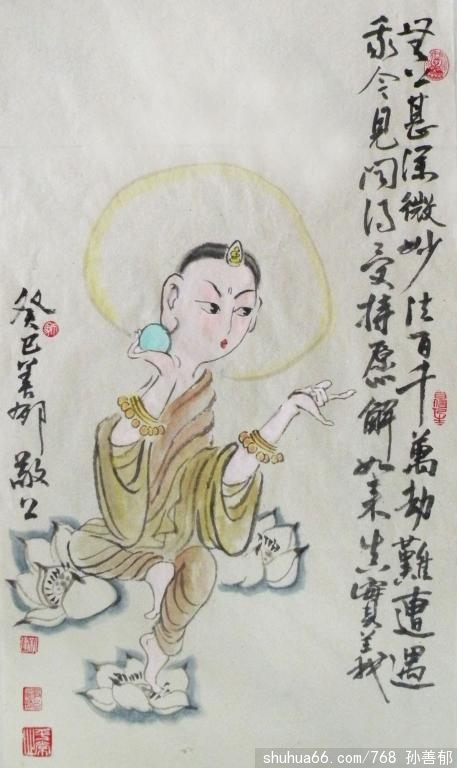 無上甚深微妙法百千萬劫難遭遇
我今見闻得受持愿解如来真實義
癸巳善郁敬书
shuhua66.com/768 孙善郁